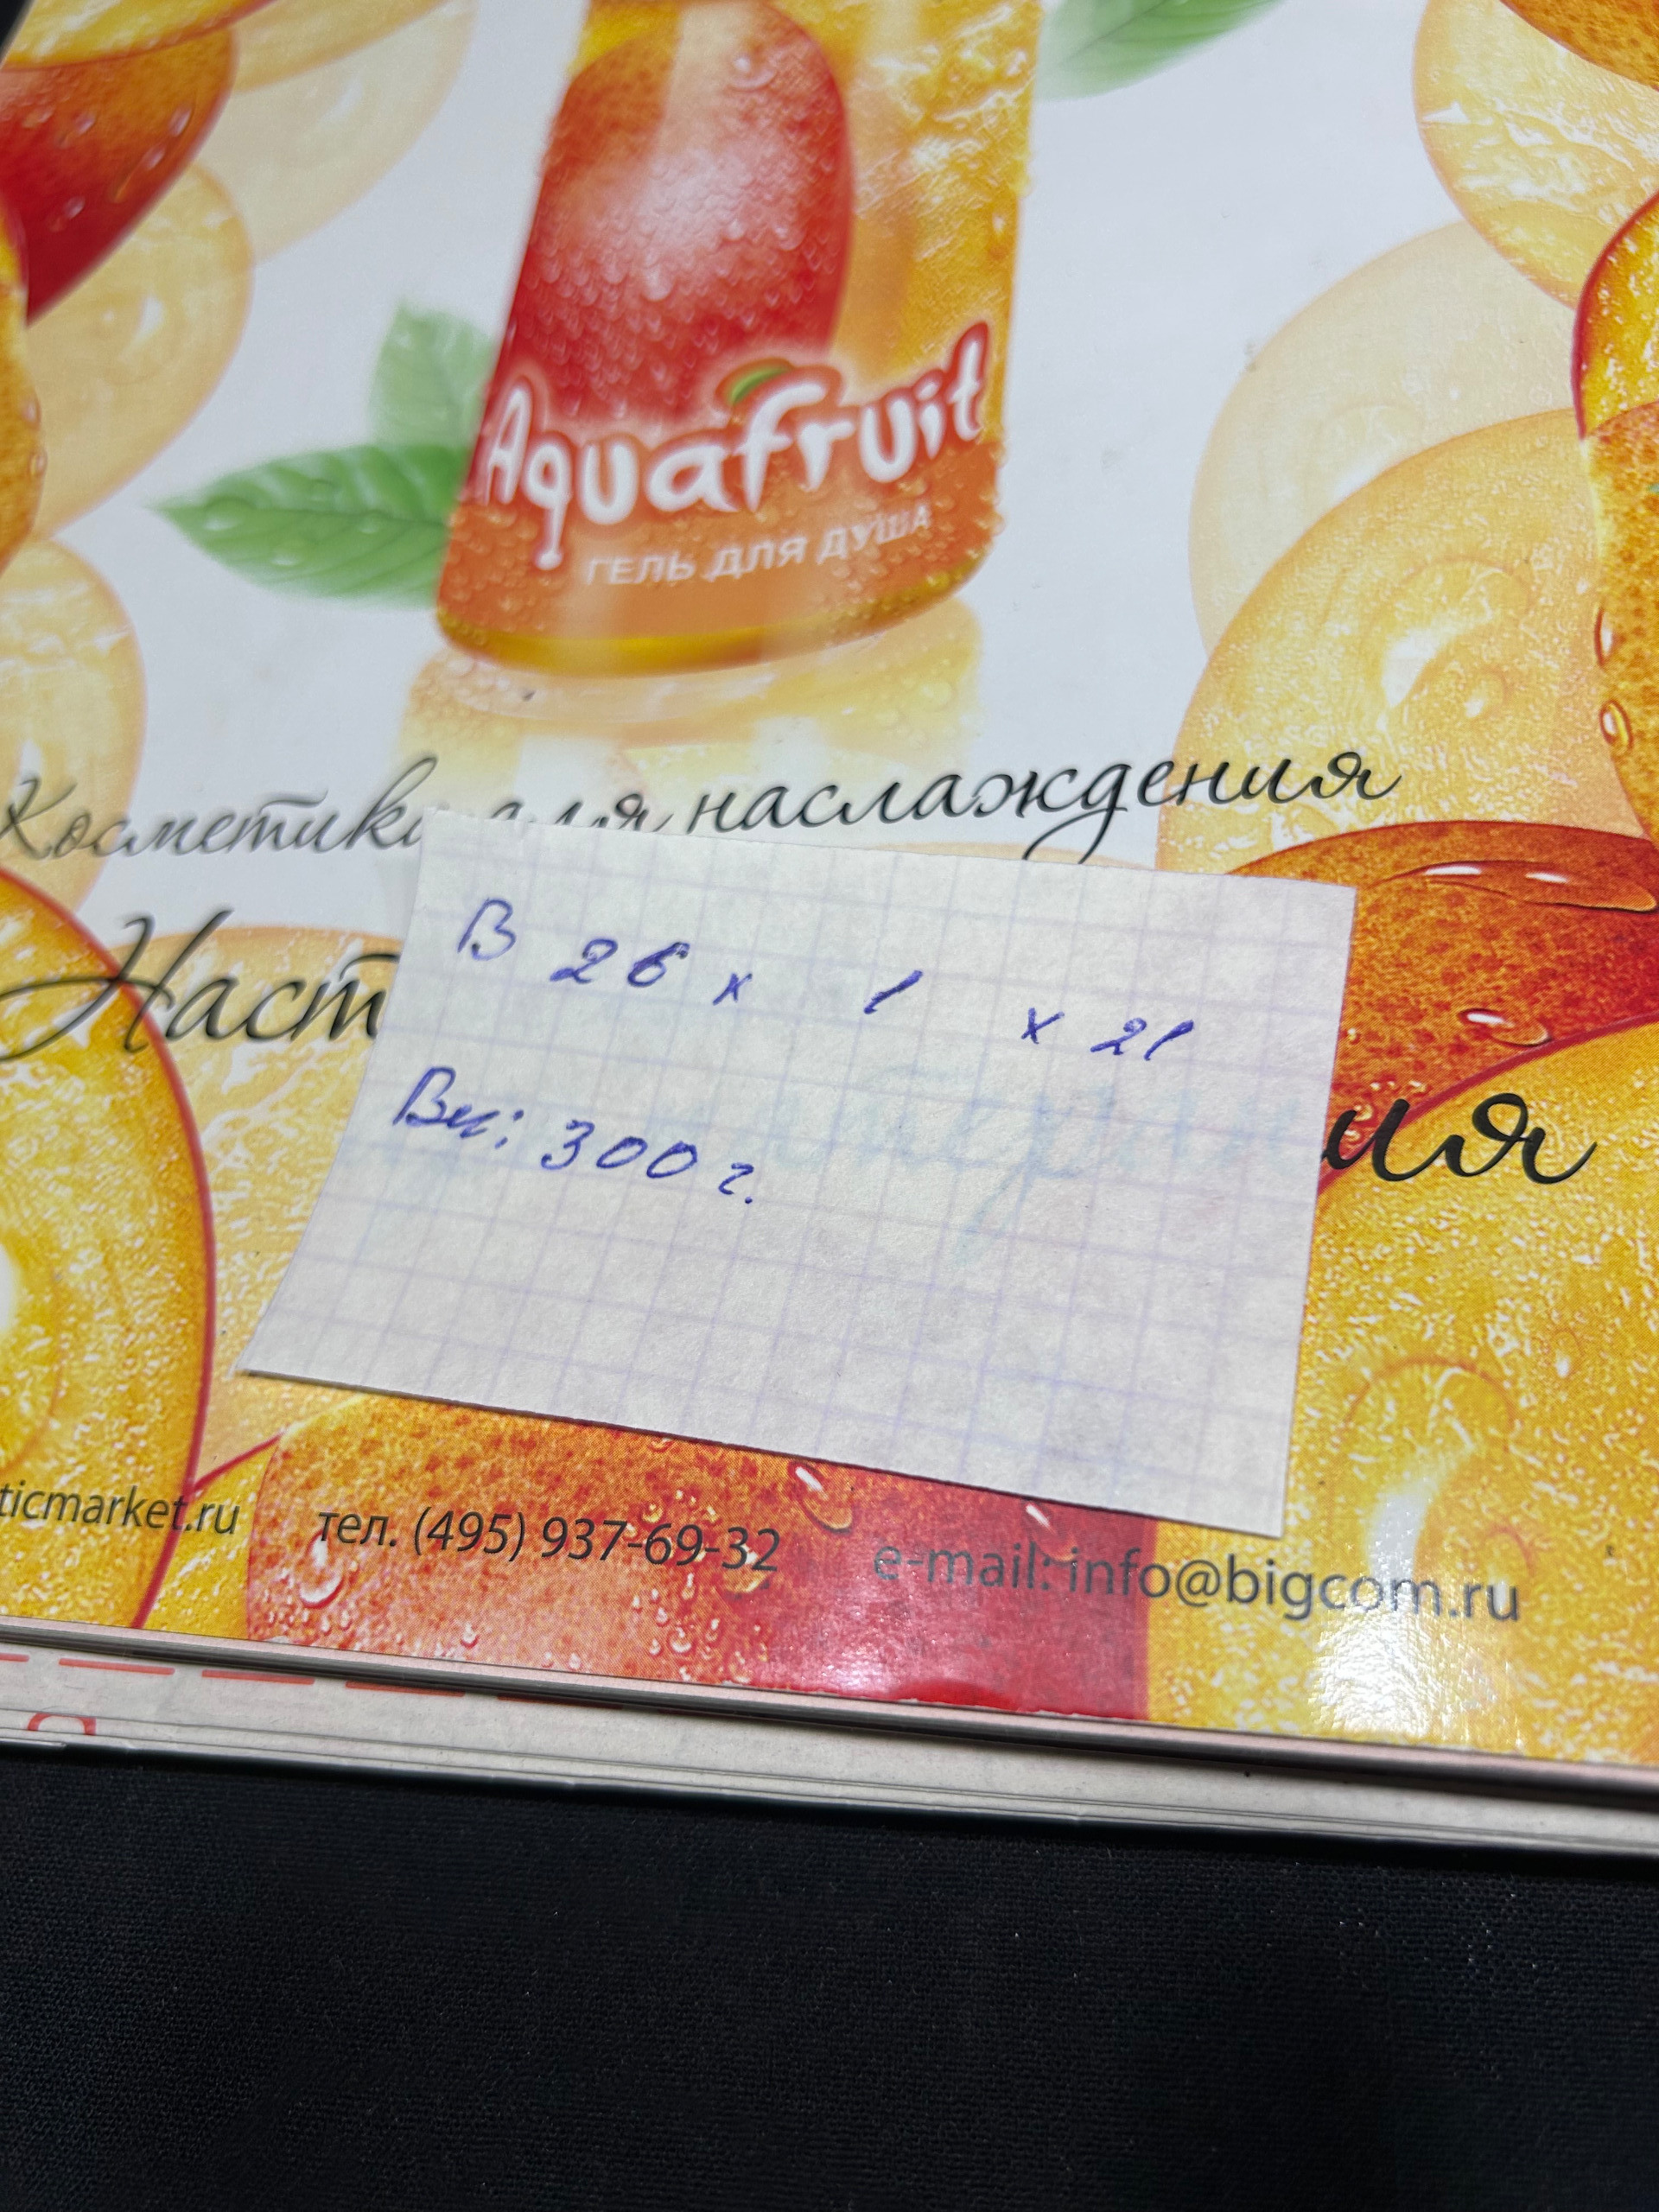 Aquafruit
ГЕЛЬ ДЛЯ ДУША
Косметика для наслаждения
Наст ия
В 26 х 1 х 21
Вы: 300 г.
ticmarket.ru тел. (495) 937-69-32 e-mail: info@bigcom.ru